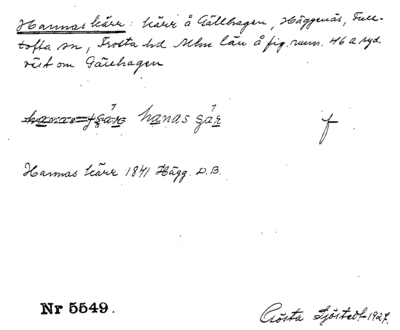 Hannas kärr: kärr å Gällhagen, Häggenäs, Ful-
tofta sn, Frosta hd Mlm län å fig. rum. 46 a syd-
väst om Gällhagen
hanas
f
Hannas kärr 1841 Hägg. D.B.
Nr 5549.
Gösta Sjöstedt 1927.